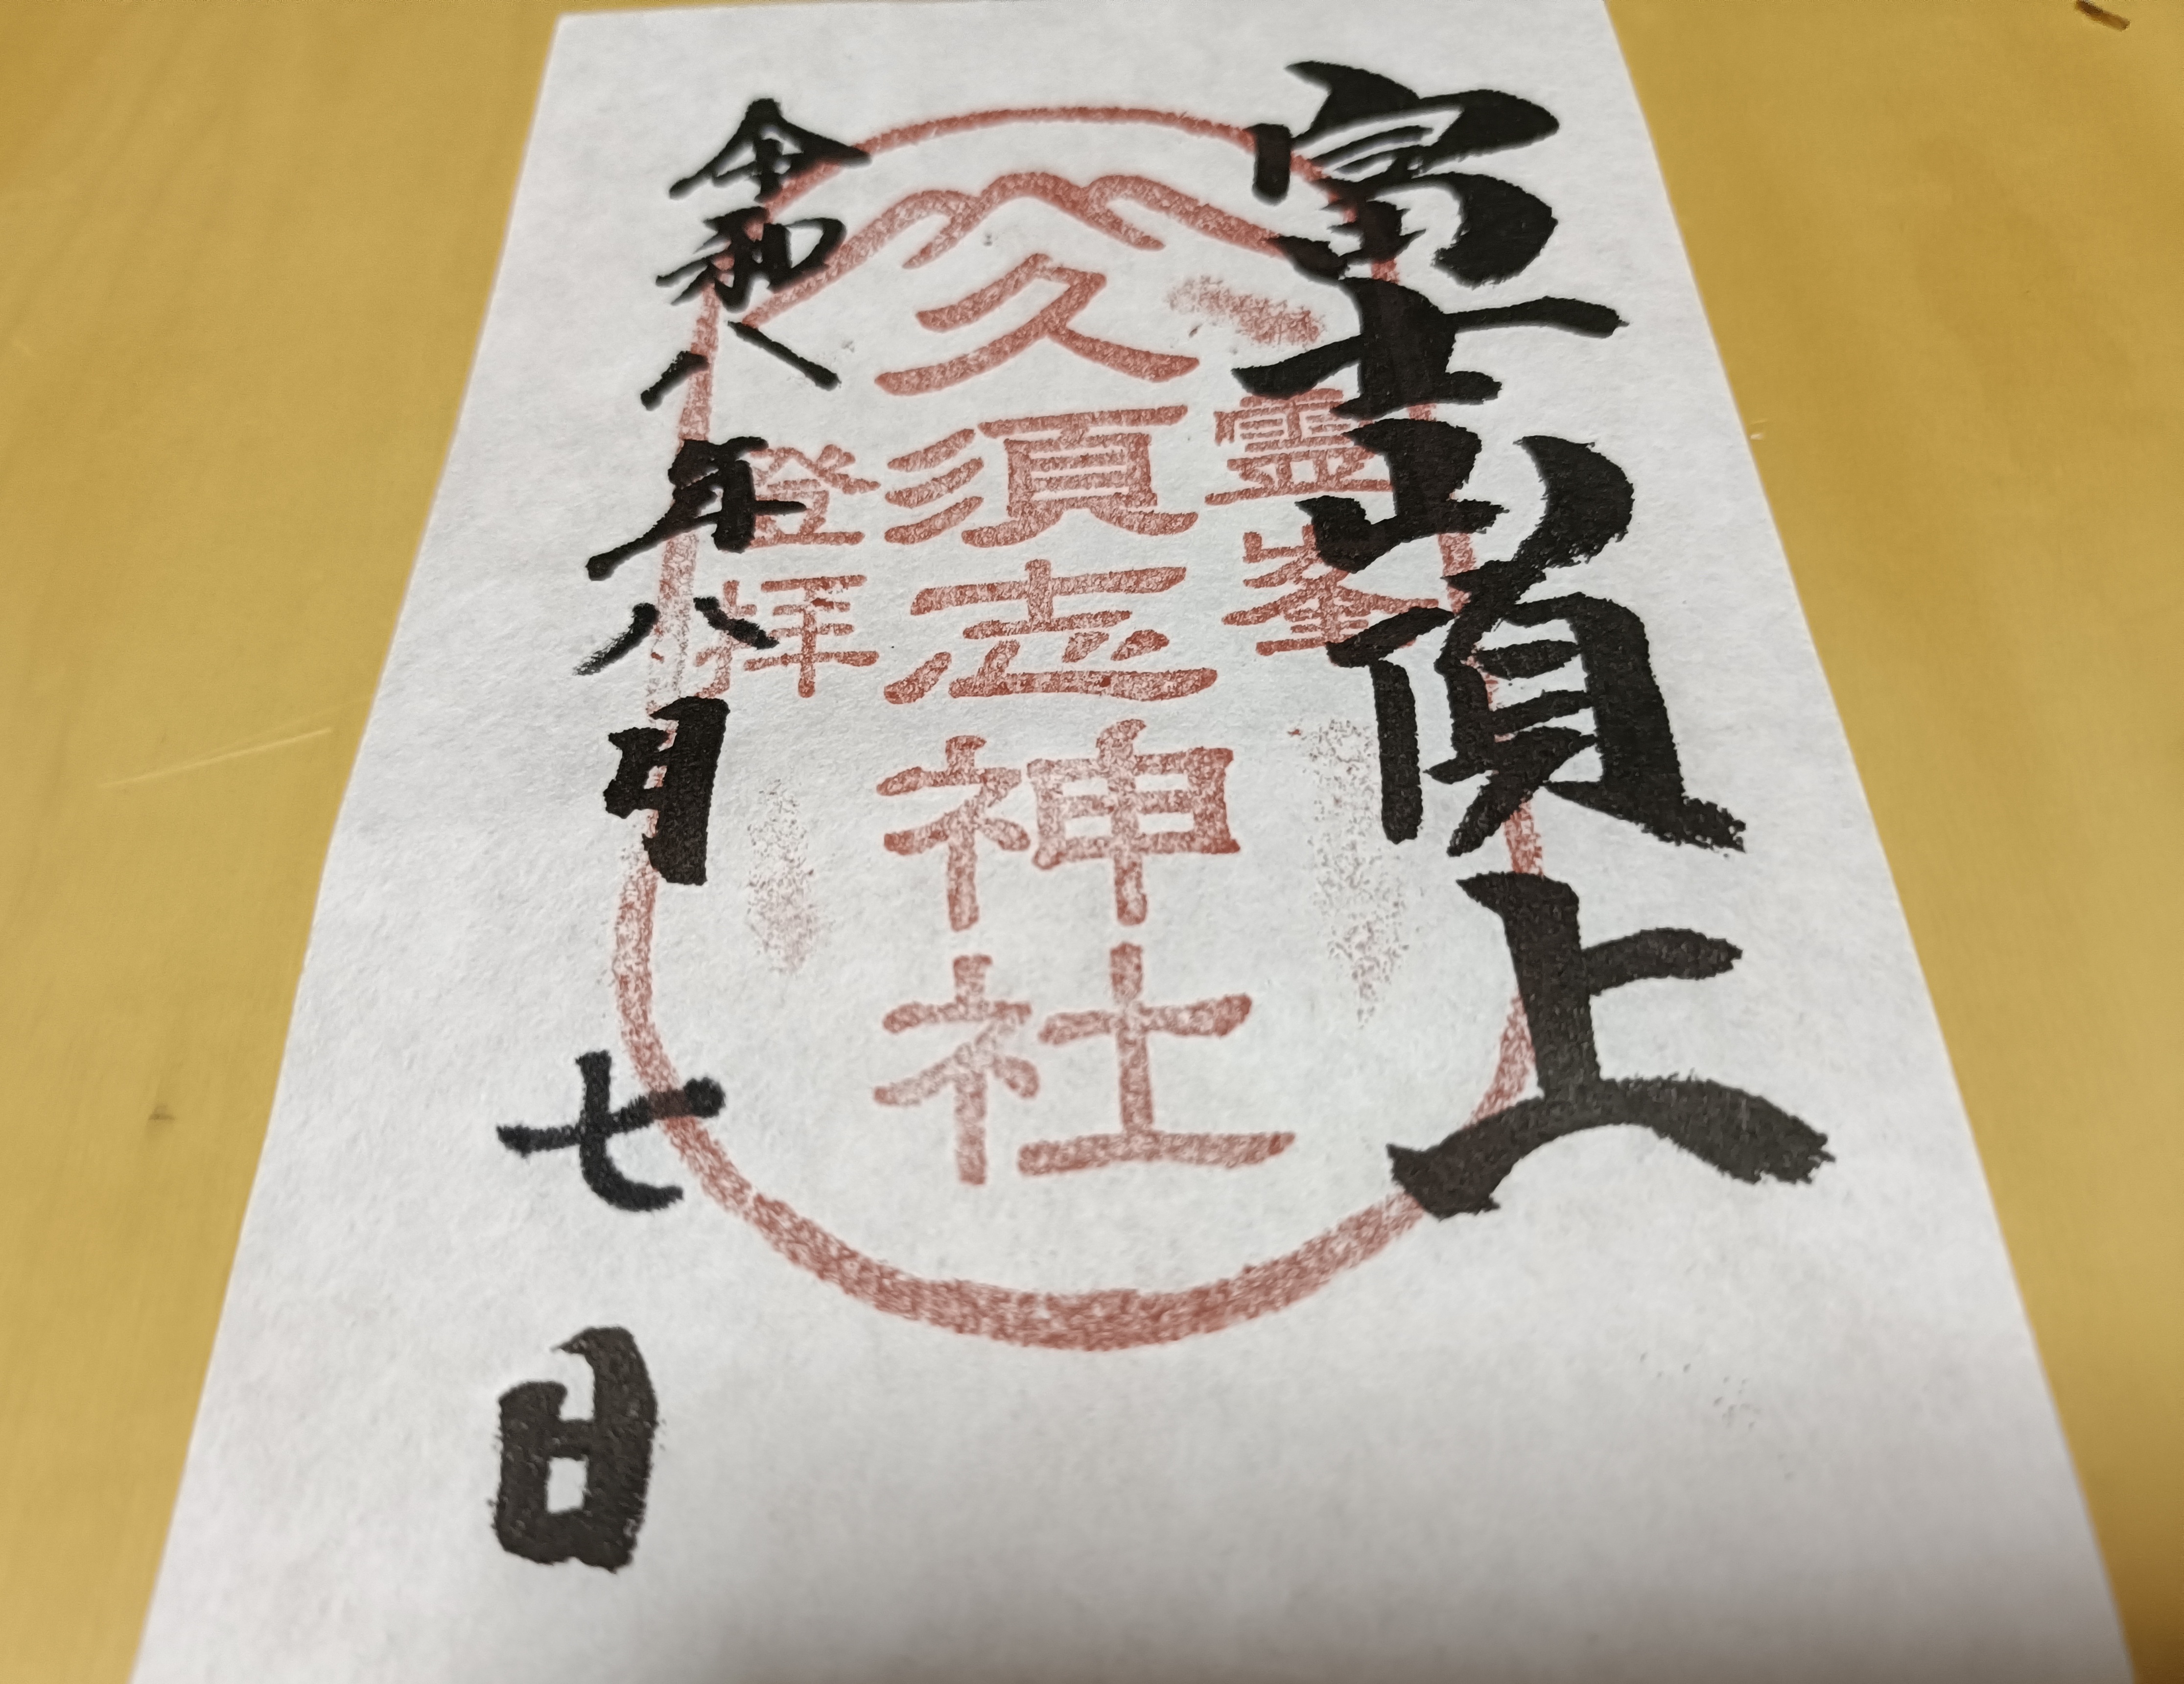 富士山頂上
霊峯
久須志神社
登拝
令和八年八月七日